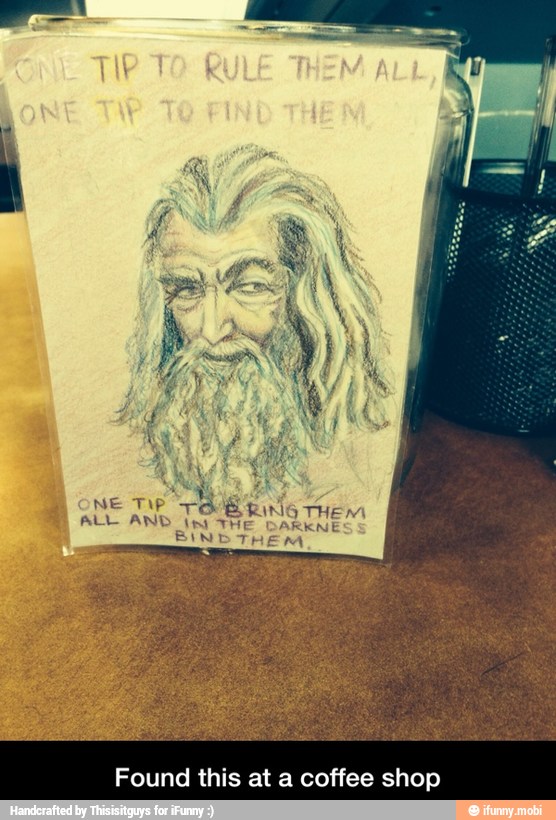 ONE TIP TO RULE THEM ALL,
ONE TIP TO FIND THEM,
ONE TIP TO BRING THEM
ALL AND IN THE DARKNESS
BIND THEM.
Found this at a coffee shop
Handcrafted by Thisisitguys for iFunny :)
ifunny.mobi